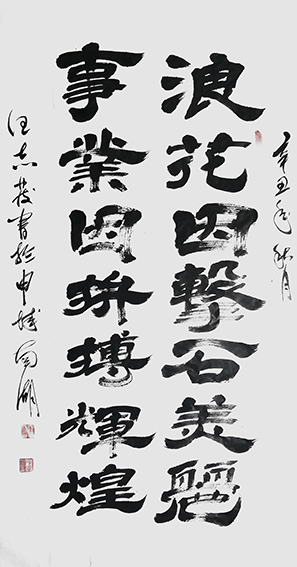 辛丑年秋月
浪花因擊石美麗
事業因拼搏輝煌
汪志
書於申城